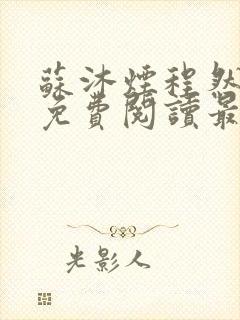 蘇沐煙程然
免費閱讀最
光影人